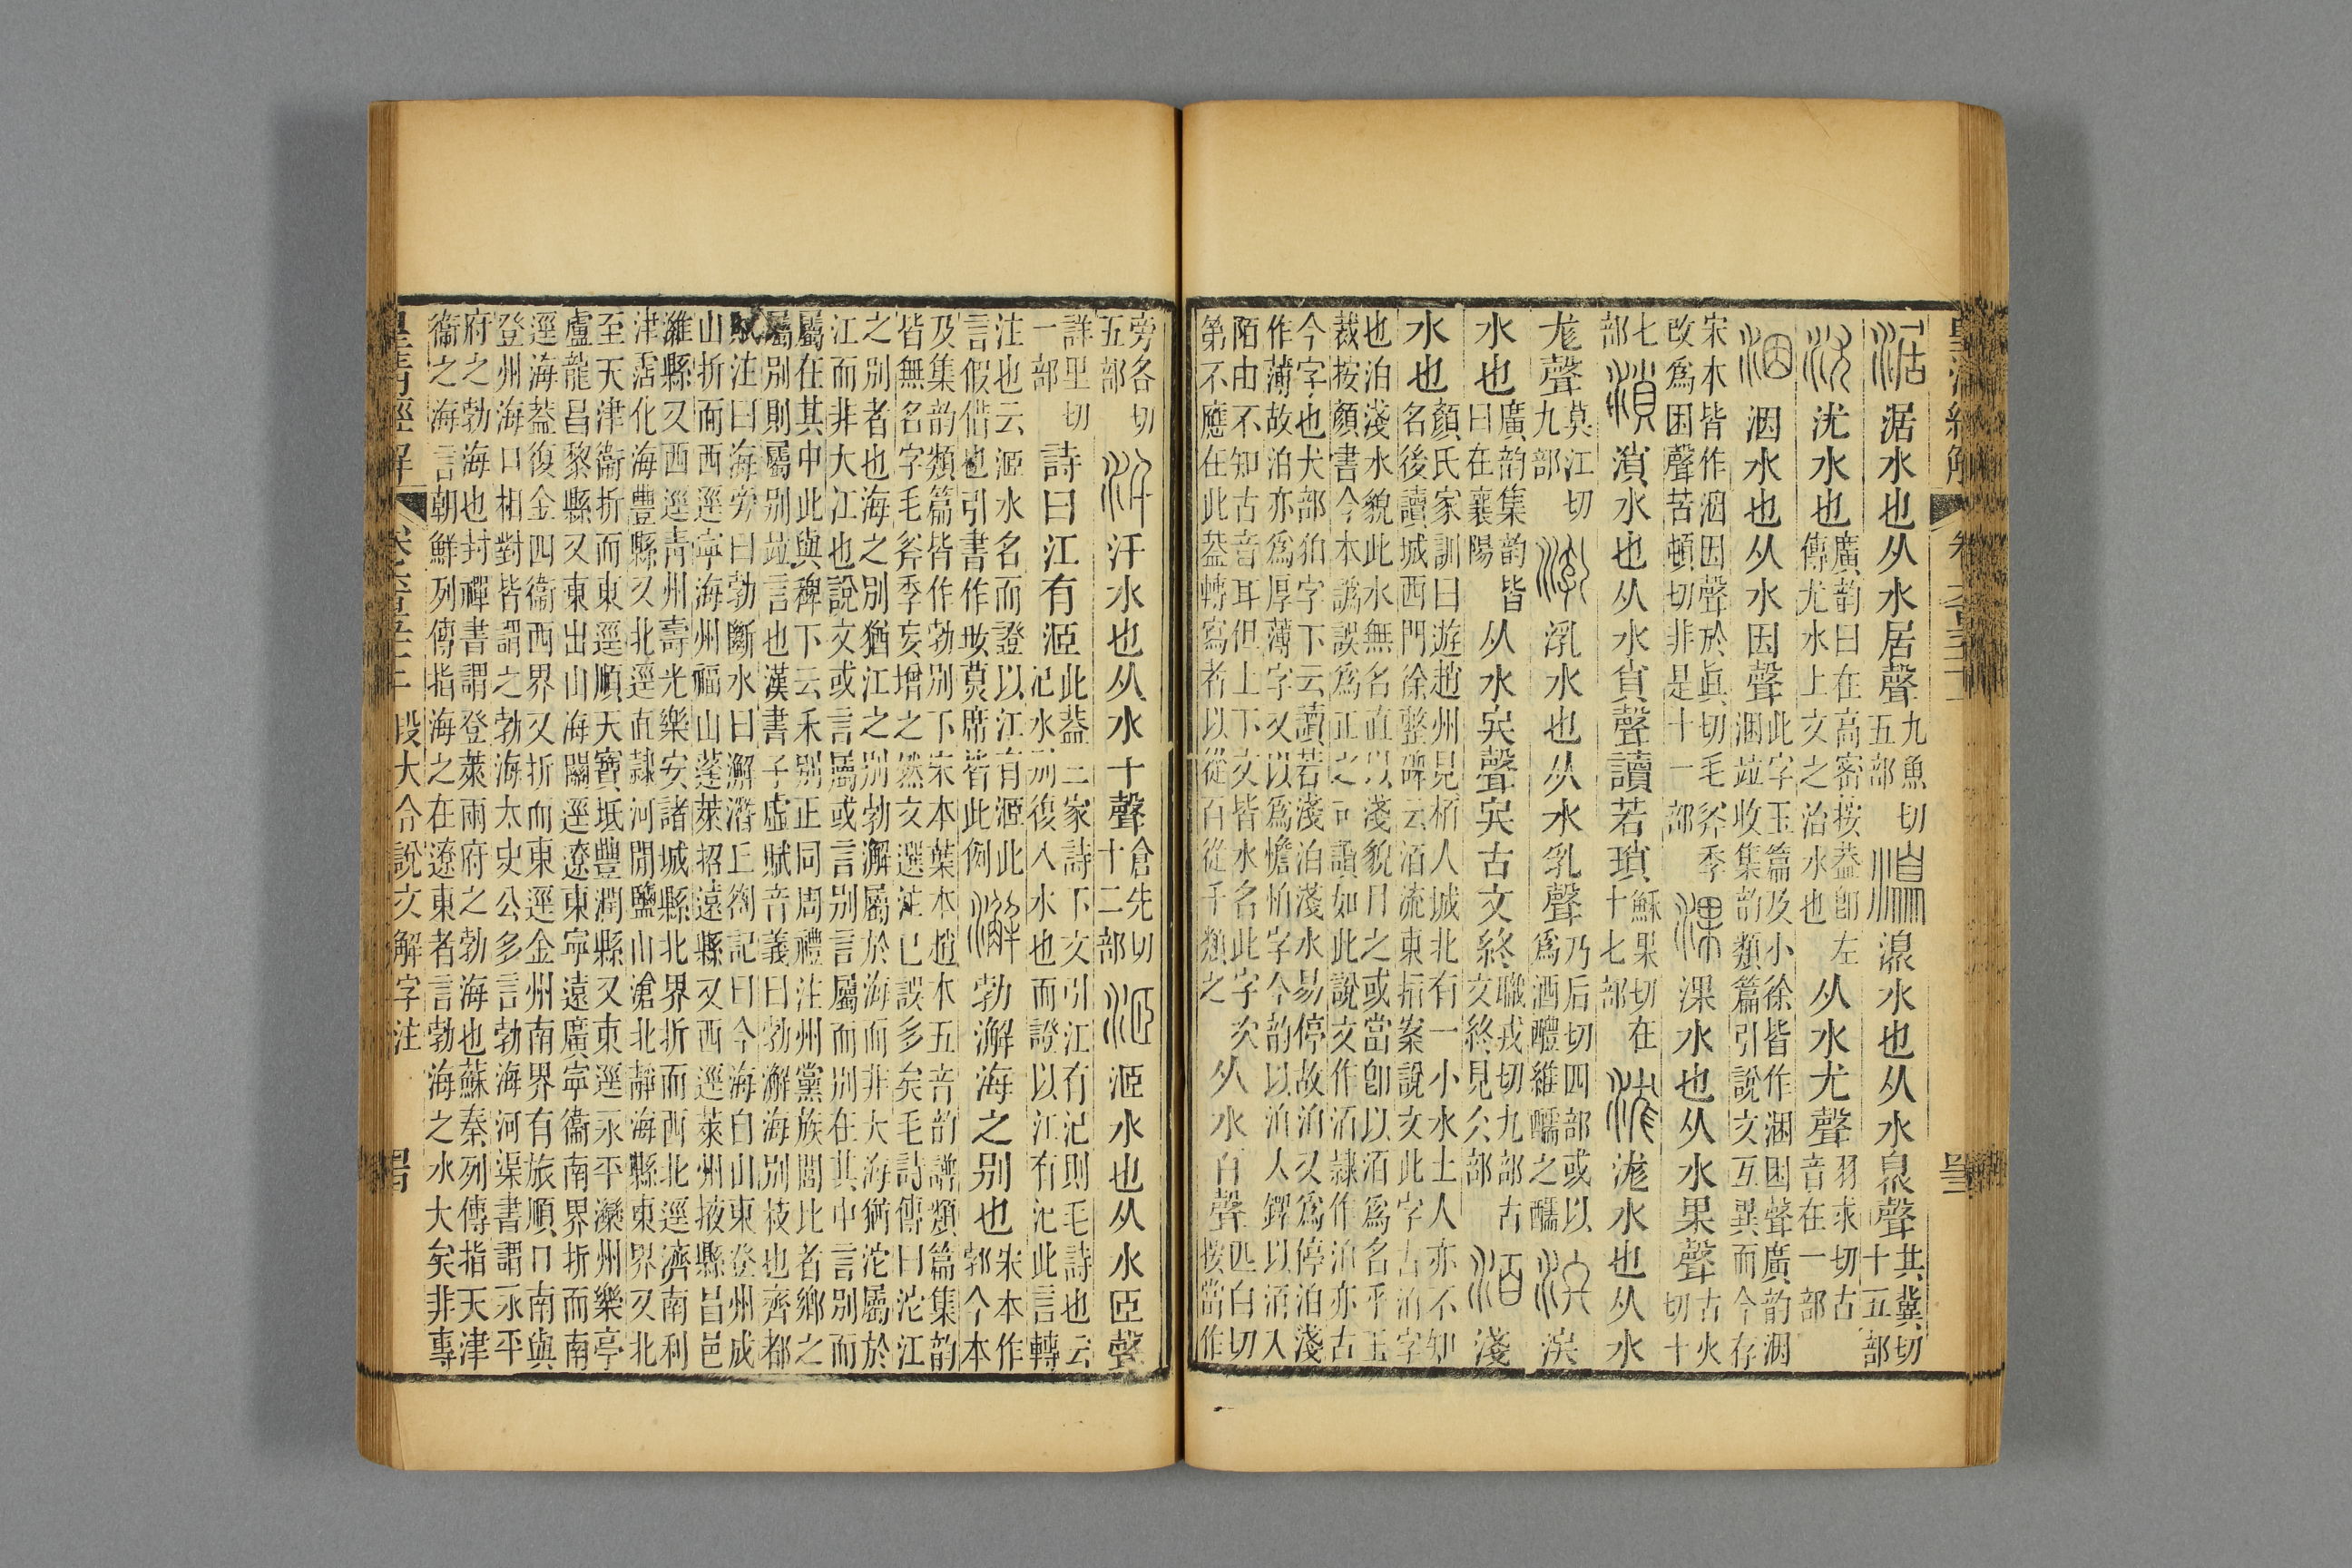 皇清經解
涺水也从水居聲九魚切五部 水也从水臮聲其冀切十五部
沋水也廣韵曰在高密按葢卽左傳尤水上文之治水也从水尤聲羽求切古音在一部
洇水也从水因聲此字玉篇及小徐皆作涃困聲廣韵洇涃竝收集韵類篇引說文互異而今存
宋本皆作洇因聲於眞切毛斧季改爲困聲苦頓切非是十一部 淉水也从水果聲古火切十
七部 溑水也从水𧴪聲讀若瑣穌果切在十七部 浝水也从水
尨聲莫江切九部 㳶水也从水乳聲乃后切四部或以爲酒醴維醹之醹
水也廣韵集韵皆曰在襄陽从水聲古文終職戎切九部古文終見仌部 洦淺
水也顏氏家訓曰遊趙州見栢人城北有一小水土人亦不知名後讀城西門徐整碑云洦流東指案說文此字古泊字
也泊淺水貌此水無名直以淺貌目之或當卽以洦爲名乎玉裁按顏書今本譌誤爲正之可讀如此說文作洦隷作泊亦古
今字也犬部狛字下云讀若淺泊淺水易停故泊又爲停泊淺作薄故泊亦爲厚薄字又以爲憺怕字今韵以泊入鐸以洦入
陌由不知古音耳但上下文皆水名此字次第不應在此葢轉寫者以從百從千類之从水百聲匹白切按當作
旁各切五部 汘水也从水千聲倉先切十二部 洍水也从水𦣞聲
詳里切一部 詩曰江有洍此葢三家詩下文引江有汜則毛詩也云汜水別復入水也而證以江有汜此言轉
注也云洍水名而證以江有洍此言假借也引書作𡚽莫席皆此例 澥勃澥海之別也宋本作郭今本
及集韵類篇皆作勃別下宋本葉本趙本五音韵譜類篇集韵皆無名字毛斧季妄增之然文選注已誤多矣毛詩傳曰沱江
之別者也海之別猶江之別勃澥屬於海而非大海猶沱屬於江而非大江也說文或言屬或言別言屬而別在其中言別而
屬在其中此與稗下云禾別正同周禮注州黨族閭比者鄉之屬別別則屬別竝言也漢書子虛賦音義曰勃澥海別枝也齊都
賦注曰海旁曰勃斷水曰澥潛丘劄記曰今海自山東登州成山折而西逕寧海州福山蓬萊招遠縣又西逕萊州掖縣昌邑
濰縣又西逕青州壽光樂安諸城縣北界折而西北逕濟南利津霑化海豐縣又北逕直隷河閒鹽山滄北靜海縣東界又北
至天津衞折而東逕順天寶坻豐潤縣又東逕永平灤州樂亭盧龍昌黎縣又東出山海關逕遼東寧遠廣寧衞南界折而南
逕海葢復金四衞西界又折而東逕金州南界有旅順口南與登州海口相對皆謂之勃海太史公多言勃海河渠書謂永平
府之勃海也封禪書謂登萊兩府之勃海也蘇秦列傳指天津衞之海言朝鮮列傳指海之在遼東者言勃海之水大矣非專
皇清經解 段大令說文解字注